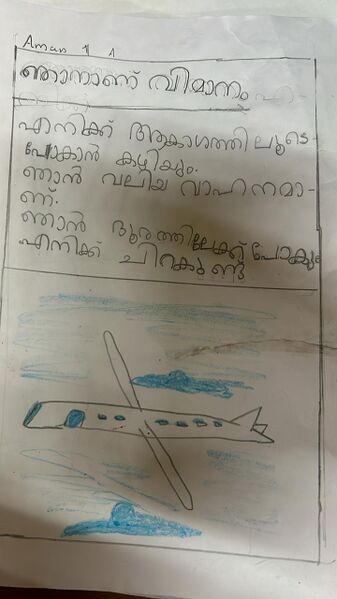 Aman 1 A
ഞാനാണ് വിമാനം
എനിക്ക് ആകാശത്തിലൂടെ
പോകാൻ കഴിയും.
ഞാൻ വലിയ വാഹനമാ-
ണ്.
ഞാൻ ദൂരത്തിലേക്ക് പോകും
എനിക്ക് ചിറകുണ്ട്